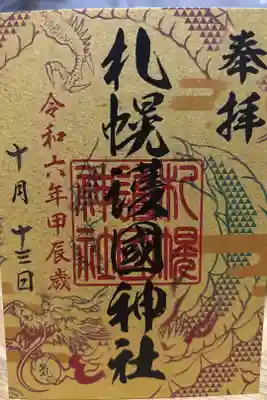 奉拝
札幌護國神社
札幌
護國
神社
令和六年甲辰歳
十月十三日